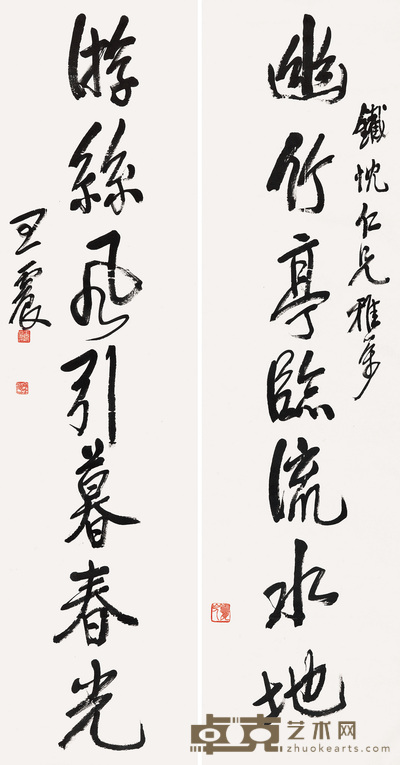 鐵忱仁兄雅屬
幽竹亭臨流水地
游絲風引暮春光
王震
卓克艺术网
zhuokearts.com